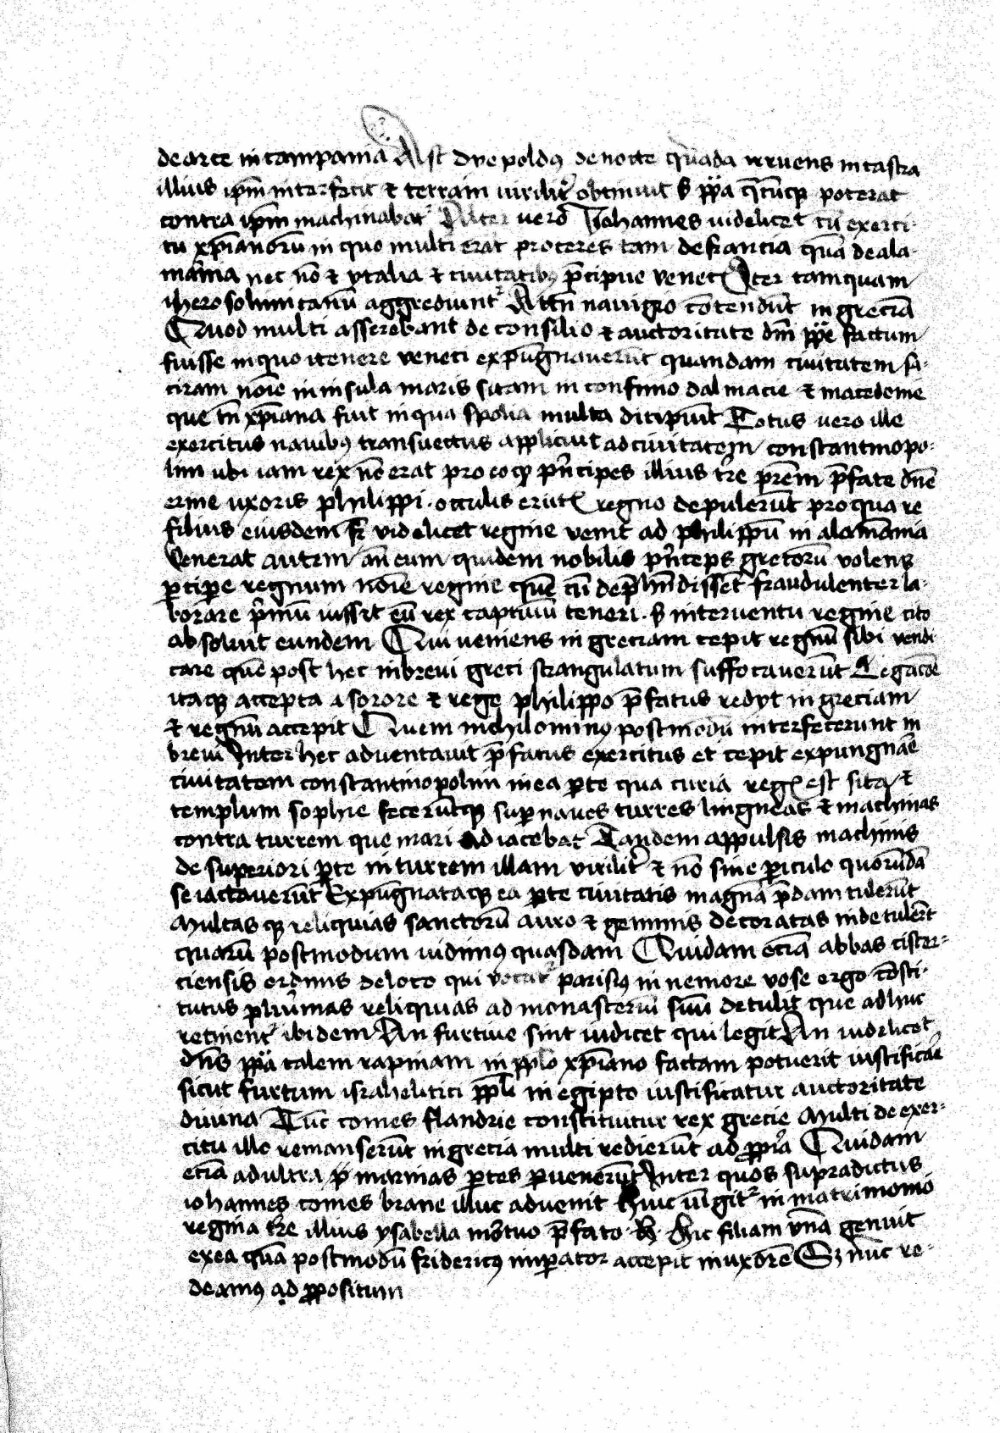 de arce in campania Ast dyepoldꝰ de nocte q̄dā irruens in castra
illius ip̄m interfecit et terram viriliť obtinuit s̄ pp̄a q̄cūqꝫ poterat
contra ip̄m machinabať Alter vero Johannes videlicet cū exerci-
tu xp̄ianorū in quo multi erāt proceres tam de francia quā de ala-
mānia nec nō et ytalia et civitatibꝰ p̄cipue venet Iter tamquam
iherosolimitanū aggrediunť Attn̄ navigio cōtendūt in greciā
Quod multi asserebant de consilio et auctoritate dn̄i pp̄e factum
fuisse in quo itenere veneti expūgnaverūt quandam civitatem Ja-
ciram noīe in insula maris sitam in confinio dalmacie et macedonie
que tn̄ xp̄iana fuit in qua spolia multa diripiūt Totus vero ille
exercitus navibꝰ transvectus applicuit ad civitatem constantinopo-
lim ubi iam rex nō erat pro eo qꝫ p̄ncipes illius tr̄e pr̄em p̄fate dn̄e
erine uxoris philippi occulis erutꝭ regno depulerūt pro qua re
filius eiusdem fr̄ videlicet regine venit ad philippū in alamānia
Venerat autem an̄ eum quidem nobilis p̄nceps grecorū volens
p̄cipe regnum noīe regine quē cū dep̄hēndisset fraudulenter la-
borare p̄mū iussit eū rex captivū teneri s̄ interventu regine cito
absolvit eundem Qui veniens in greciam cepit regnū sibi vendi
care quē post hec in brevi greci strangulatum suffocaverūt Legacōe
itaqꝫ accepta a sorore et rege philippo p̄fatus redyt in greciam
et regnū accepit Quem nichilominꝰ postmodū interfecerunt in
brevi Inter hec adventavit p̄fatus exercitus et cepit expungnāre
civitatem constantinopolim in ea p̄te qua curia regꝭ est sita et
templum sophie fecerūtqꝫ sup̄ naves turres lingneas et machinas
contra turrem que mari adiacebat Tandem appulsis machinis
de superiori p̄te in turrem illam viriliť et nō sine p̄iculo quorūdā
se iactaverūt Expūgnataqꝫ ea p̄te civitatis magnā p̄dam tulerūt
Multas qꝫ reliquias sanctorū auro et gemmis decoratas inde tulerūt
quarū postmodum vidimꝰ quasdam Quidam eciā abbas cister-
ciensis ordinis de loco qui vocať parisiꝰ in nemore vose ergo cōsti-
tutus plurimas reliquias ad monasteriū suū detulit que adhuc
retinenť ibidem An furtive sint iudicet qui legit An videlicet
dn̄s pp̄a talem rapinam in pp̄lo xp̄iano factam potuerit iustificāre
sicut furtum israhelitici pp̄li in egipto iustificatur auctoritate
divina Tūc comes flandrie constituitur rex grecie Multi de exer-
citu illo remanserūt in grecia multi redierūt ad pp̄ria Quidam
eciā ad ultra marinas p̄tes p̄venerūt Inter quos supradictus
iohannes comes brane illuc advenit huic iūgiť in matrimonio
regina tr̄e illius ysabella mōtuo p̄fato Hic filiam unā genuit
ex ea quā postmodū fridericꝰ imp̄ator accepit in uxōrē Sꝫ nūc re-
deamꝰ ad ppositum